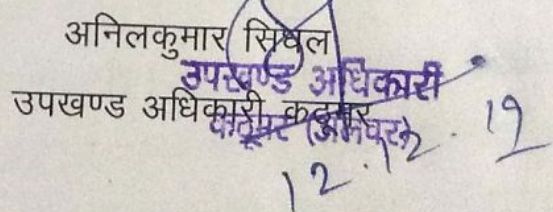 अनिलकुमार सिंघल
उपखण्ड अधिकारी
उपखण्ड अधिकारी कठूमर
कठूमर (अलवर)
12.12.19